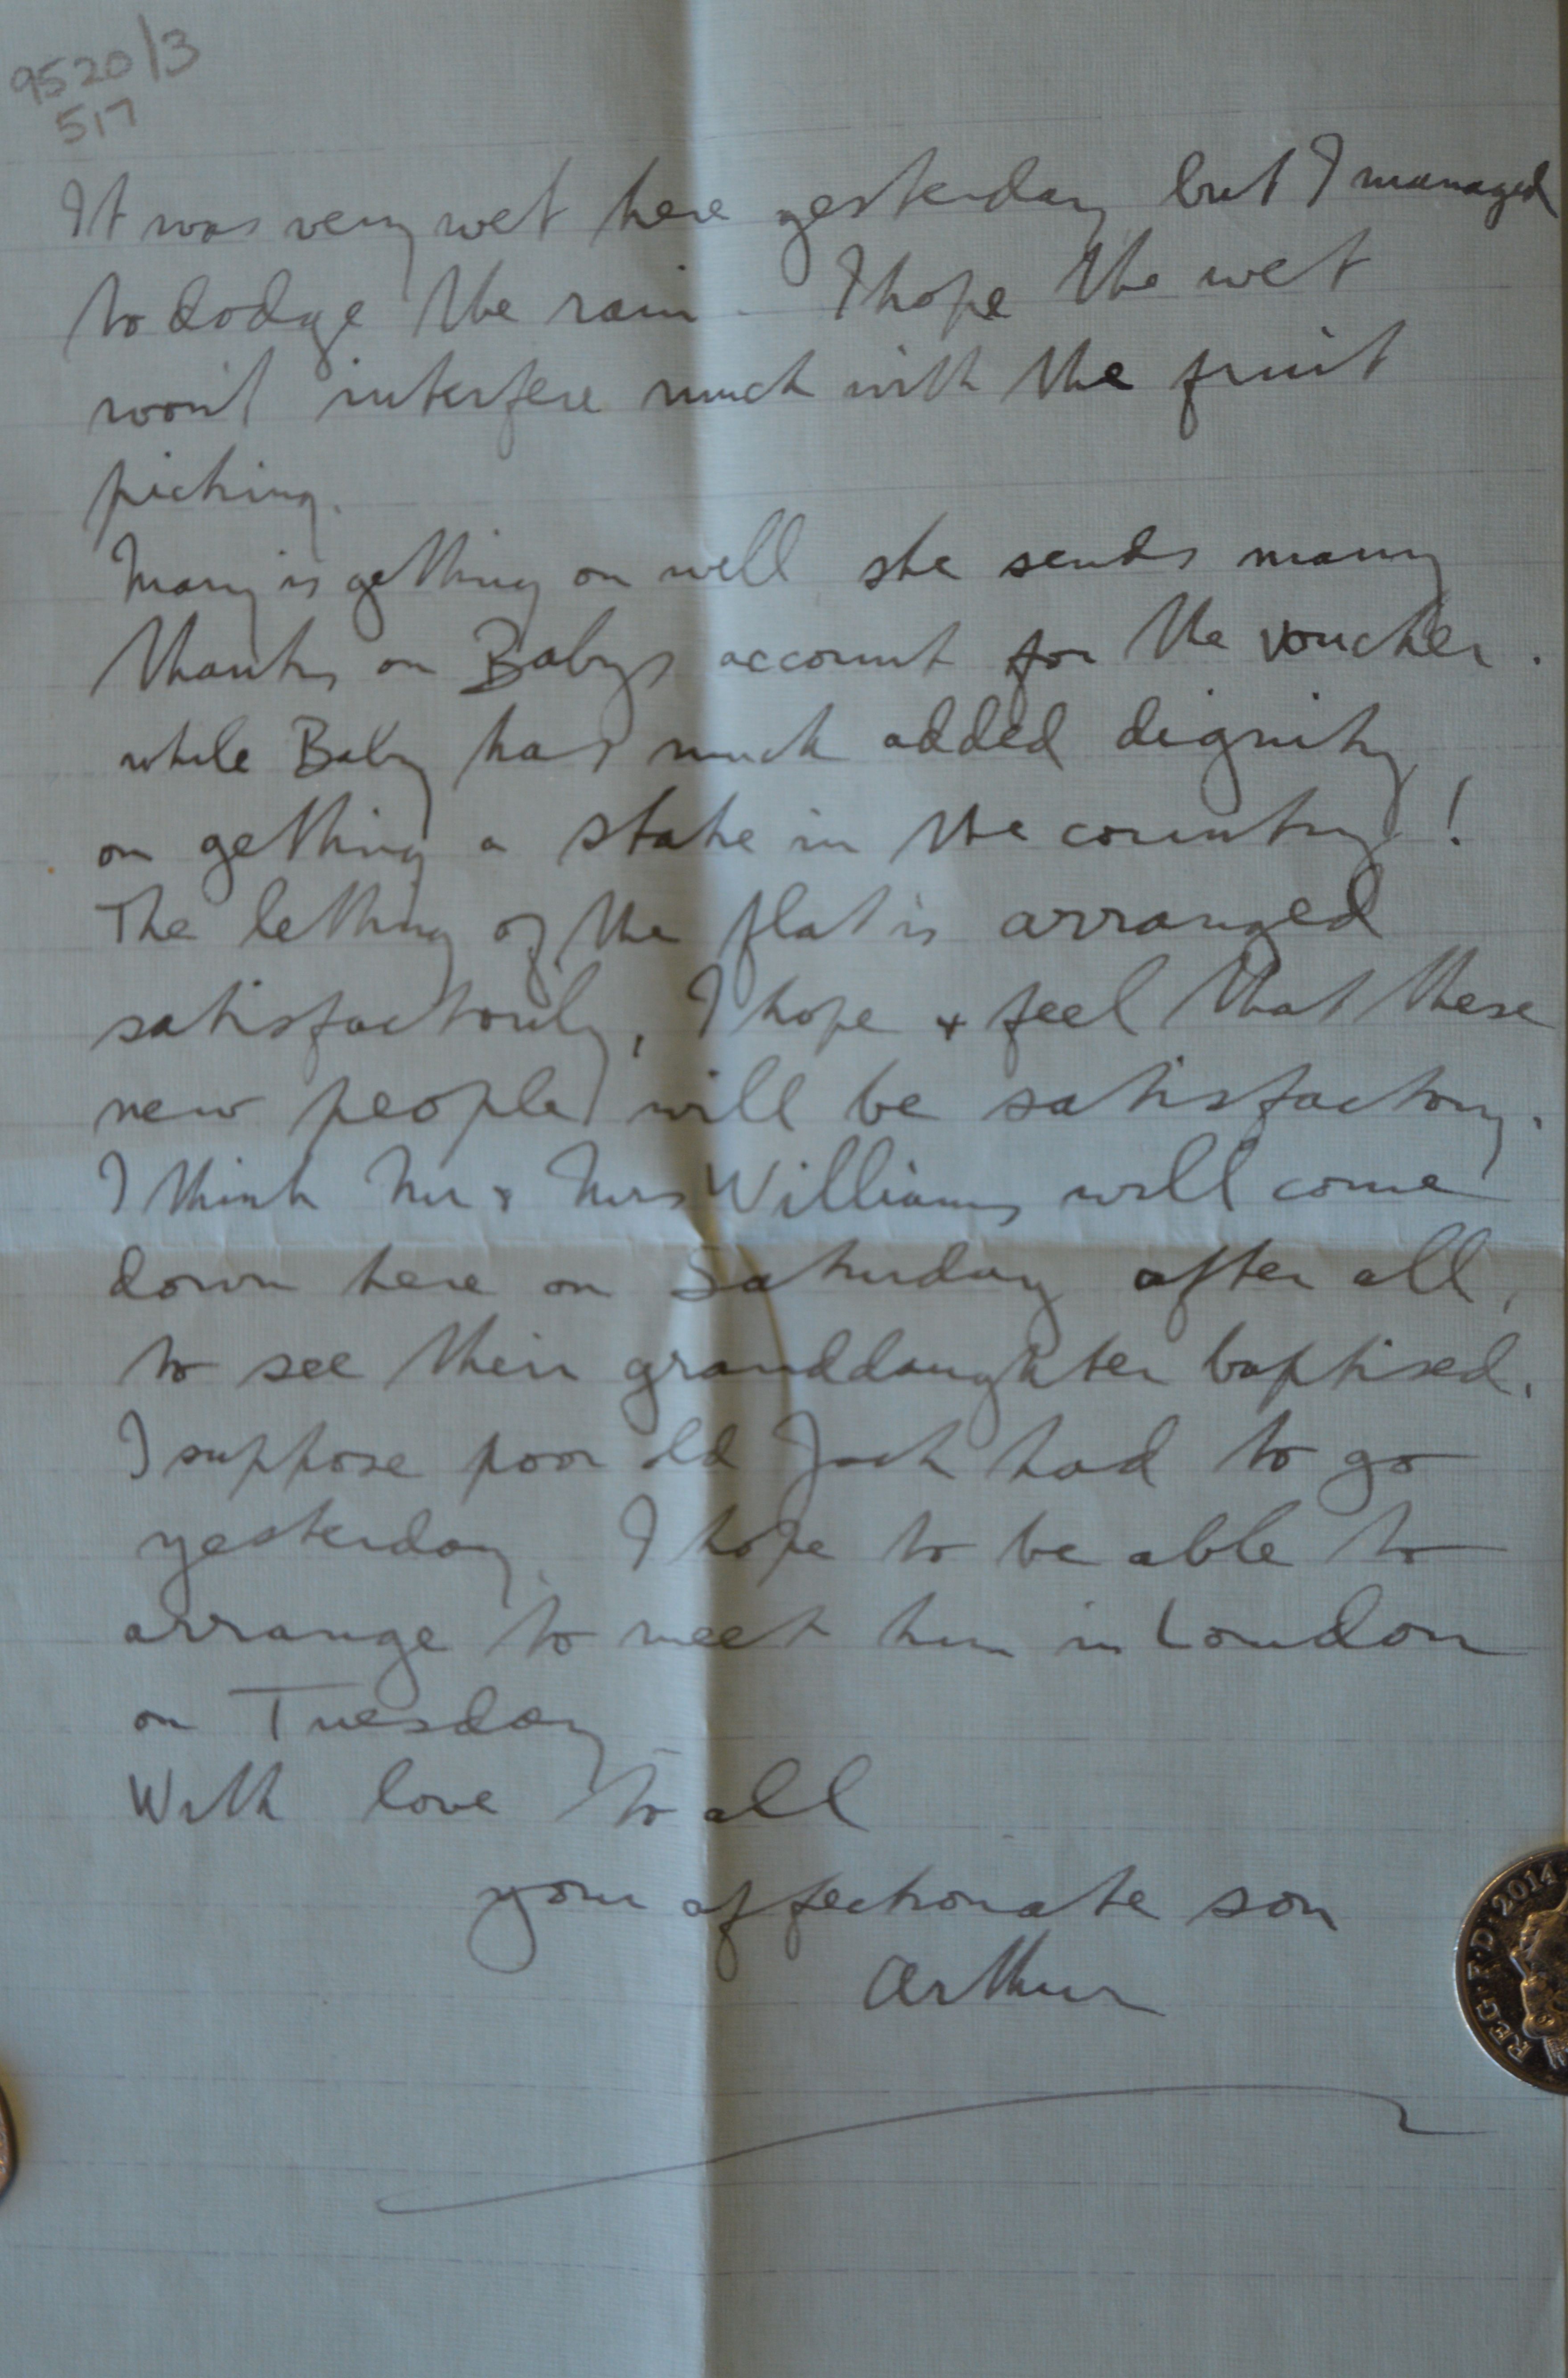 9520/3
517
It was very wet here yesterday but I managed
to dodge the rain. I hope the wet
won't interfere much with the fruit
picking.
Mary is getting on well she sends many
thanks on Babys account for the voucher.
while Baby has much added dignity
on getting a stake in the country!
The letting of the flat is arranged
satisfactorily, I hope & feel that these
new people will be satisfactory.
I think Mr & Mrs Williams will come
down here on Saturday after all,
to see their granddaughter baptised.
I suppose poor old Jack had to go
yesterday. I hope to be able to
arrange to meet him in London
on Tuesday
With love to all
your affectionate son
Arthur
REG·F·D·2014